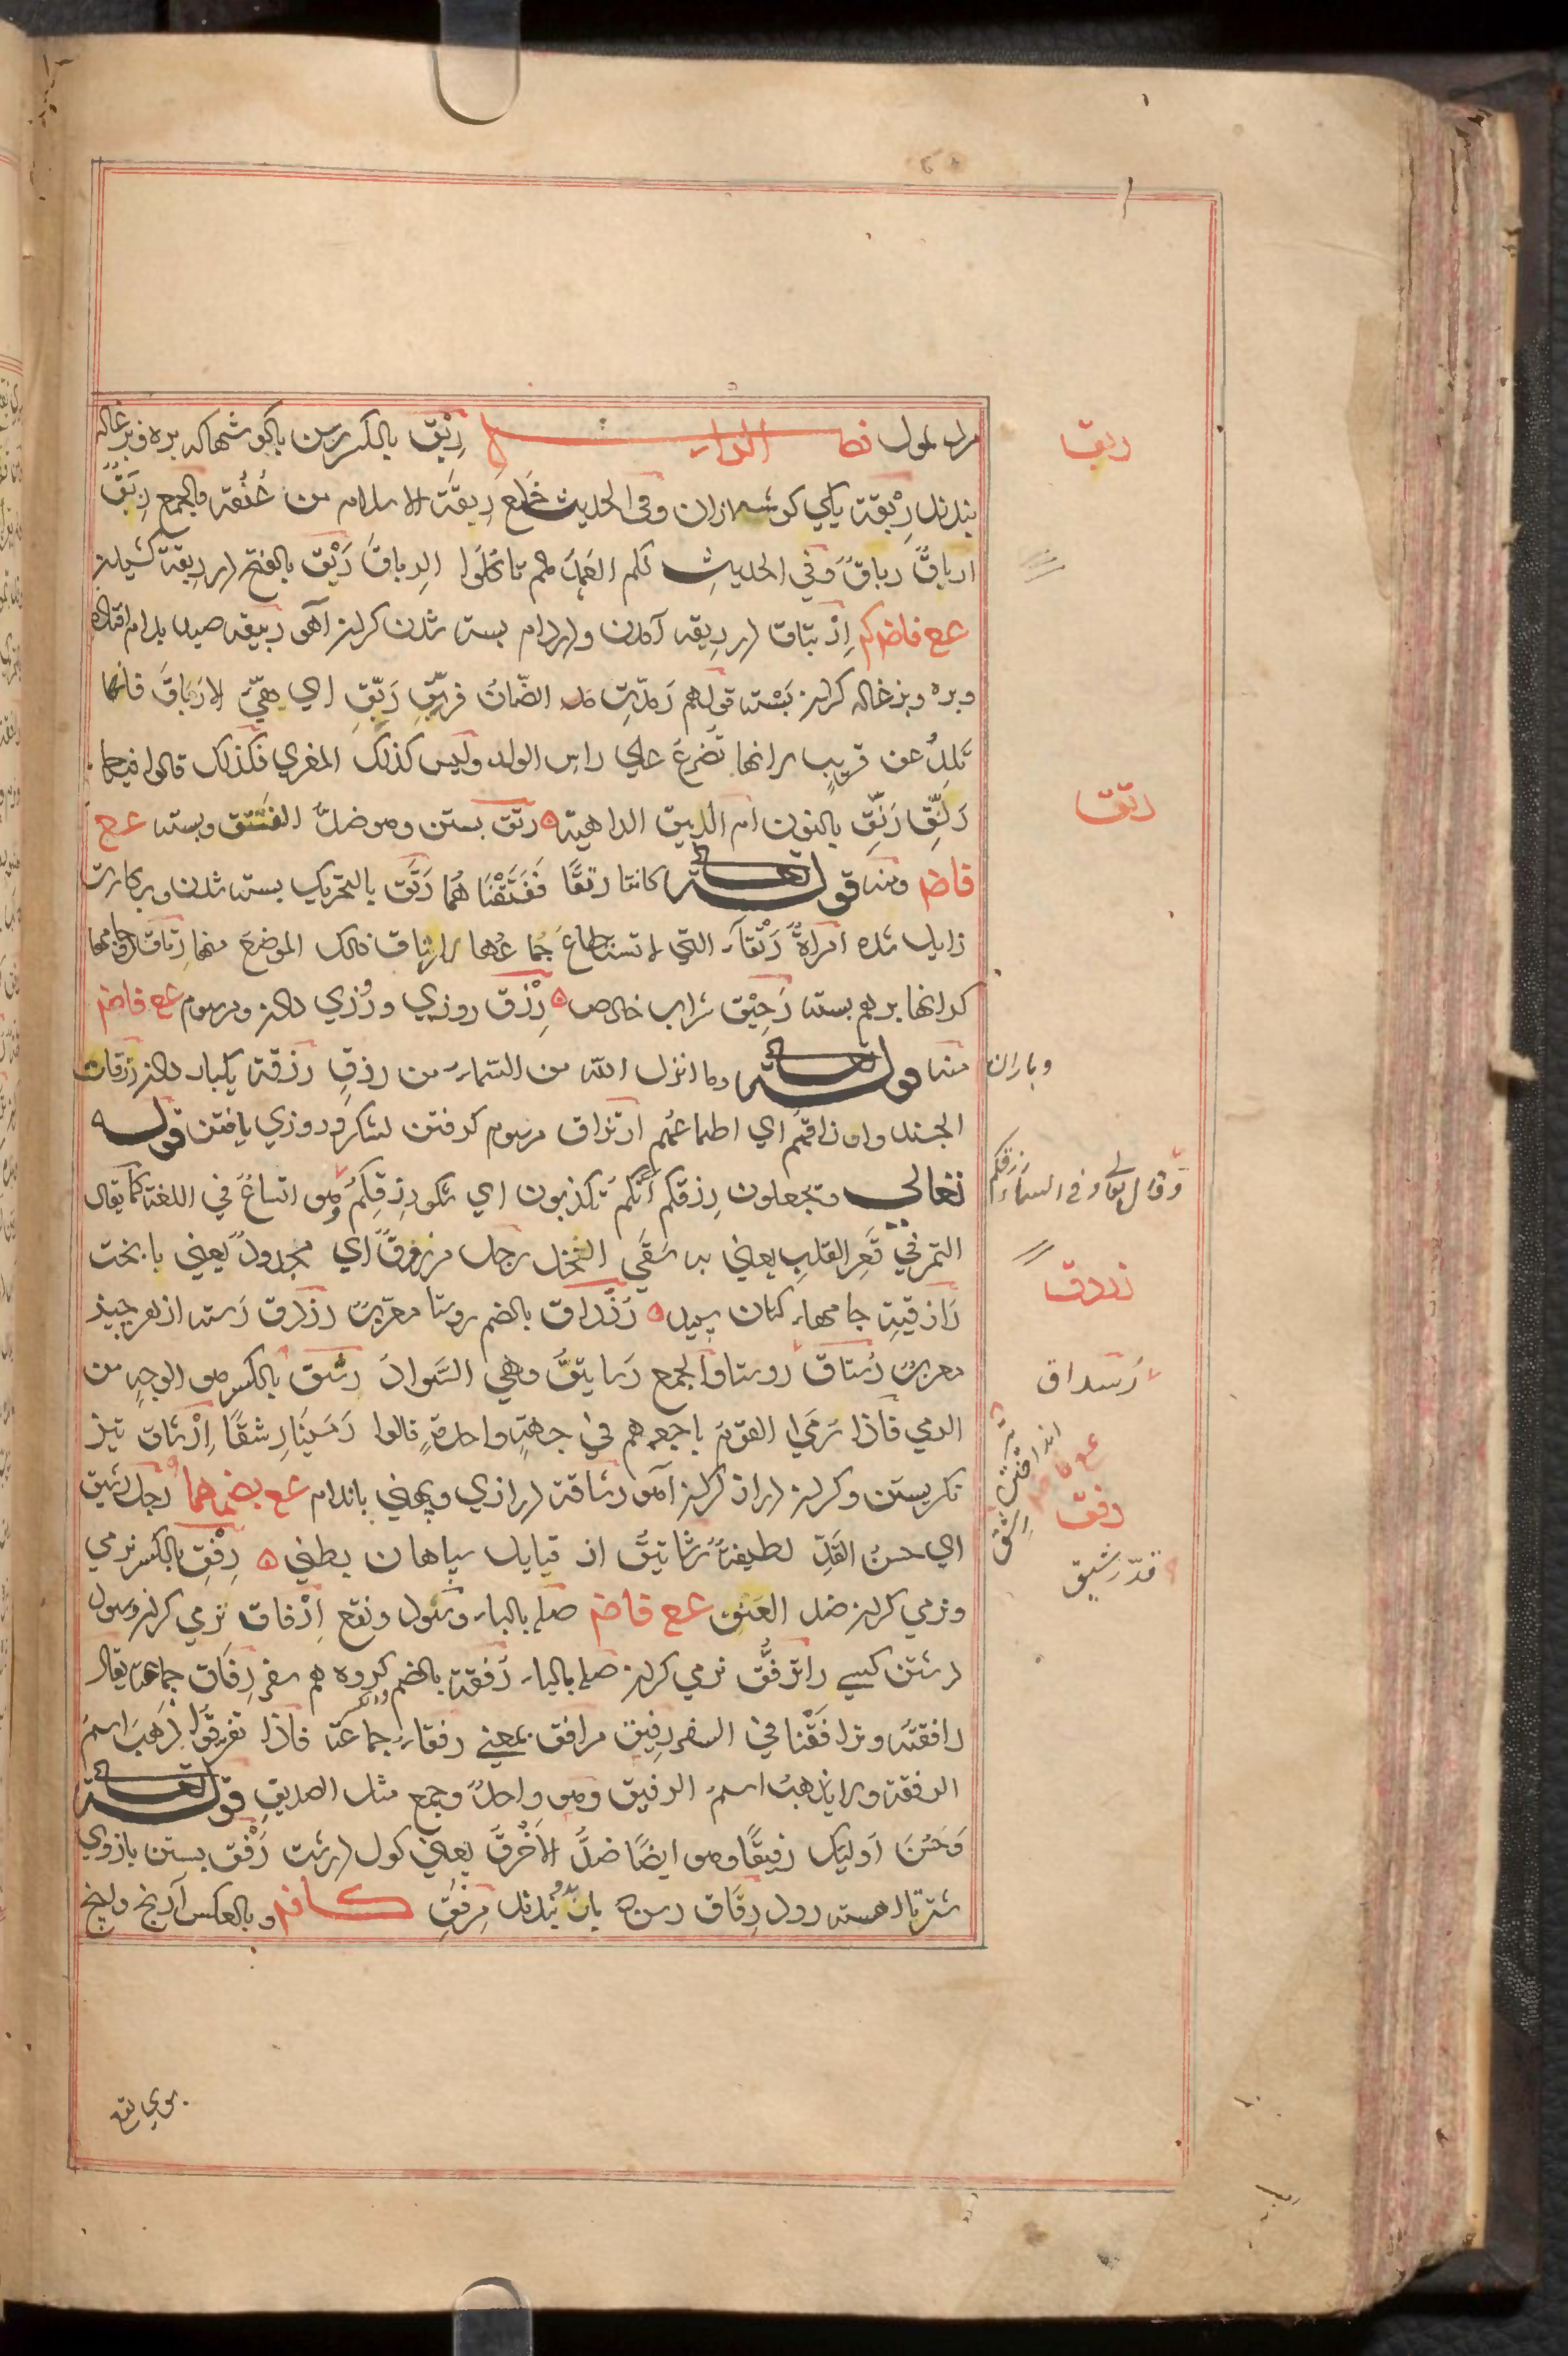 فصل الراء رِبْق بالكسر رسن باكوشها كه بره وبزغاله
بندند رِبْقة يكي كوشه ازان وفي الحديث خَلَع رِبقَة الاسلام من عُنُقه والجمع رِبَقٌ
ارباقٌ رباقٌ وفي الحديث لكم العَهدُ مالم تاكلوا الرِباقَ رَبْق بالفتح در ربقة كشيدن
عع فاضم كم اِرْتباق در ربقه آمدن ودر دام بسته شدن كردن آهو ربيقه صيد بدام افتاده
وبره وبزغاله كردن بَسْته قولهم رَمَّدَتِ الضّانُ فرَبِّقِ رَبِّقِ اي هَيِّئ الارباقَ فانها
تَلِدُ عن قريبٍ لانها تُضرِعُ علي راس الولد وليس كذلك المعزي فكذلك قالوا فيها
رَنِّقِ رَنِّقِ بالنون ام الرُبيق الداهية رتق بستن وهو ضدّ الفَتْق وبسته عع
فاضم ومنه قوله تعالى كانتا رتقًا فَفَتَقْنَا هُما رَتَق بالتحريك بسته شدن وبركارت
زايل شده امراةٌ رَتْقآء التي لا تستطاعُ جُماعُها لارتتاق ذلك الموضع منها رِتاق دو جامها
كرانها برهم بسته رَحِيْق شراب خالص رِزْق روزي ورُزي دادن ومرسوم عع فاضم
منه قوله تعالى وما انزل الله من السّماء من رزقٍ رَزقة يكبار دادن رزقات
الجند وارزاقهم اي اطماعُهم ارتزاق مرسوم كرفتن لشكر وروزي يافتن قوله
تعالي وتجعلون رزقكم اَنّكم تُكذبون اي شكر رِزقِكُم وهو اتساعٌ في اللغة كما يقال
التمر في قَعرِ القلبِ يعني به سَقْي النخل رجل مرزوقٌ اي مجدودٌ يعني بابخت
رَازقية جامهاء كتان سپيد رُزْداق بالضم روستا معرّبٌ رزدق رَسته از هر چيز
معربٌ رُستاق روستا والجمع رَساتيقُ وهي السّوادُ رِشْق بالكسر هو الوجه من
الرمي فاذا رَمَي القومُ باجمعهم في جهةٍ واحدةٍ قالوا رَمَيْنَا رِشقًا اِرْشاق تيز
نكريستن وكردن دراز كردن آهو رشاقة درازي وپهني باندام عع بضمهما رجل رشيق
اي حسنُ القَدِّ لطيفهُ رِفْق بالكسر نرمي
ونرمي كردن ضد العنف عع فاضم صله بالباء وسُود ونفع اِرْفاق نرمي كردن وسود
داشتن كسي را تَرَفُّق نرمي كردن صله بالباء رُفقة بالضم والكسر كروه هم سفر رِفاق جماعة يقال
رافقته وترافَقْنا في السفر رفيق مرافق بمعني رفقاء جماعة فاذا تفرقوا ذَهبَ اسمُ
الرفقة ولا يذهبُ اسمُ الرفيق وهو واحدٌ وجمع مثل الصديق قوله تعالى
وَحَسُنَ اُوليك رفيقًا وهو ايضًا ضدّ الاَخْرقِ يعني كول درشت رَفْق بستن بازوي
شتر تا اهسته رود رِفاق رسن كه بان بندند مِرْفَق كافم وبالعكس آرنج
ربق
رتق
وباران
وقال تعالى وفي السماء رزقكم
رزدق
رَسداق
رفق
قدّ رشيق